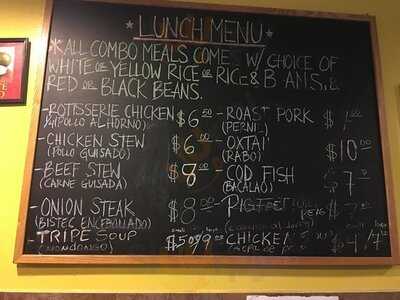 LUNCH MENU
*ALL COMBO MEALS COME W/ CHOICE OF
WHITE OR YELLOW RICE OR RICE & BEANS. &
RED OR BLACK BEANS.
-ROTISSERIE CHICKEN $6.50
(POLLO AL HORNO)
-CHICKEN STEW $6.00
(POLLO GUISADO)
-BEEF STEW $8.00
(CARNE GUISADA)
-ONION STEAK $8.00
(BISTEC ENCEBOLLADO)
-TRIPE SOUP $5.00 $9.00
(MONDONGO)
-ROAST PORK
(PERNIL)
-OXTAIL $10.00
(RABO)
-COD FISH $7
(BACALAO)
CHICKEN